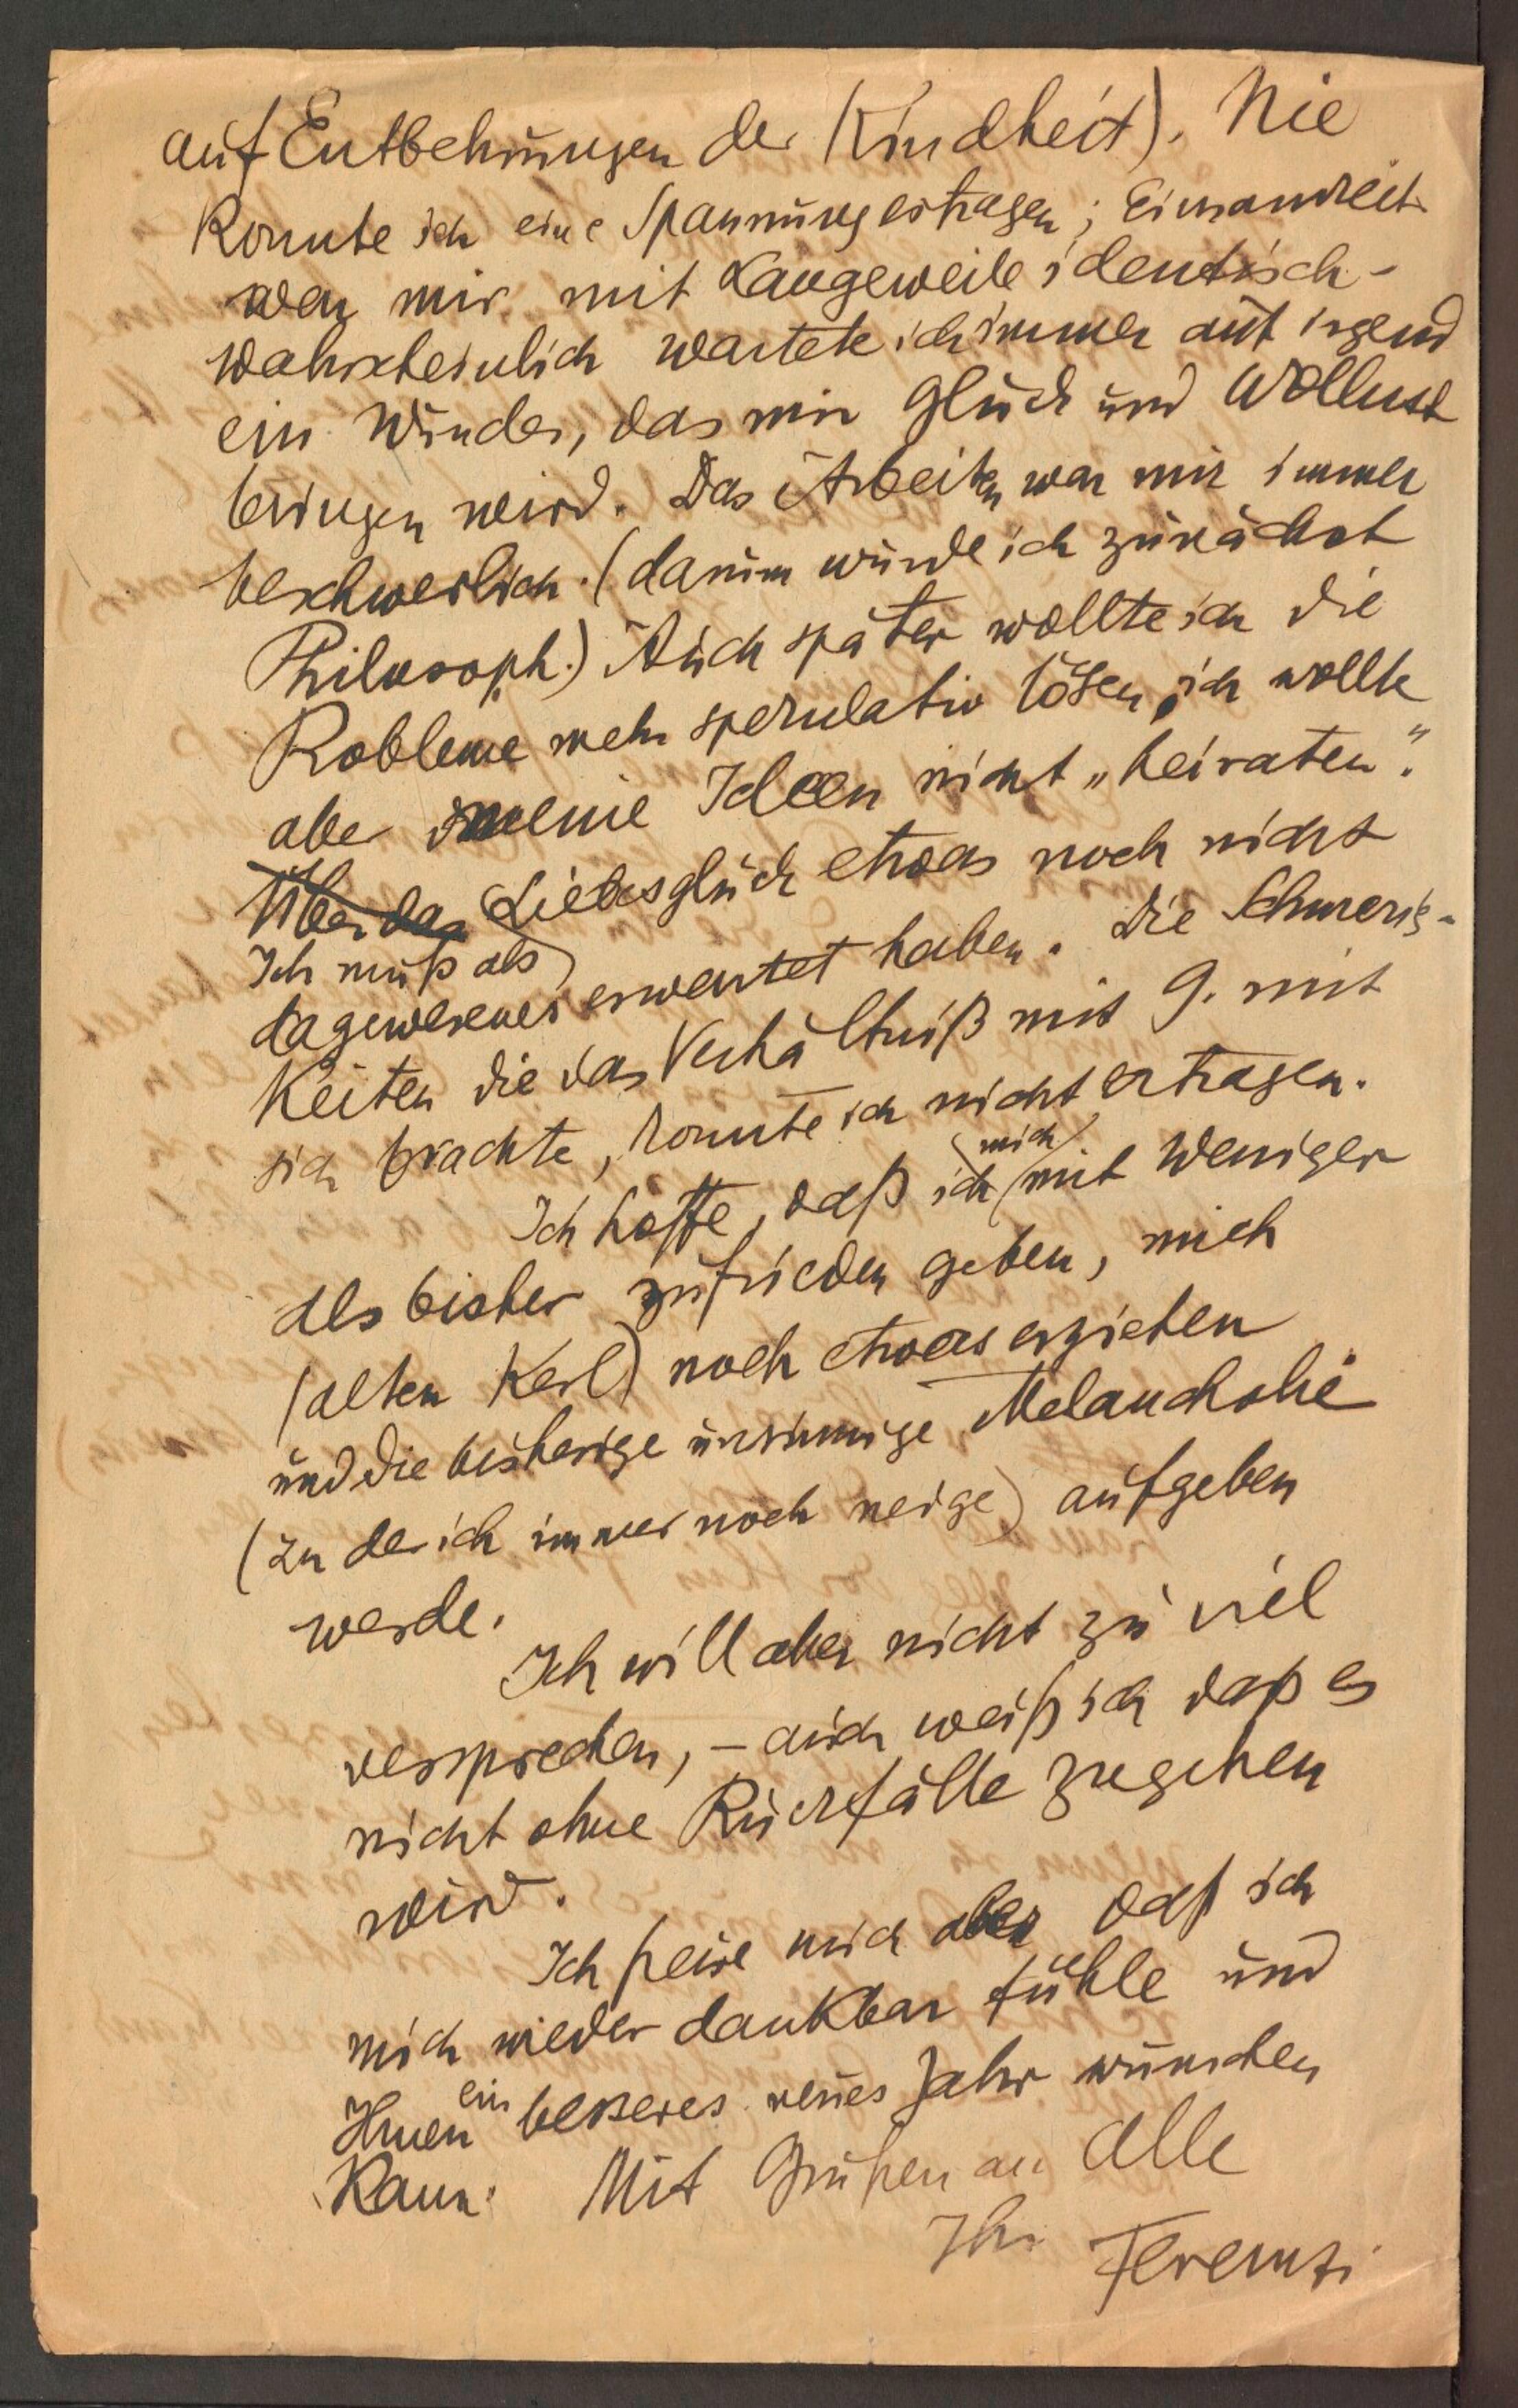 auf Entbehrungen der Kindheit). Nie
konnte ich eine Spannung ertragen; Einsamkeit
war mir mit Langeweile identisch -
wahrscheinlich wartete ich immer auf irgend
ein Wunder, das mir Glück und Wollust
bringen wird. Das Arbeiten war mir immer
beschwerlich. (darum wurde ich zunächst
Philosoph.) Auch später wollte ich die
Probleme mehr spekulativ lösen, ich wollte
aber meine Ideen nicht „heiraten".
Über das Liebesglück etwas noch nicht
Ich muß als
dagewesenes erwartet haben. Die Schwerig-
keiten die das Verhältniß mit G. mit
sich brachte, konnte ich nicht ertragen.
Ich hoffe, daß ich mich mit weniger
als bisher zufrieden geben, mich
(alten Kerl) noch etwas erziehen
und die bisherige unsinnige Melancholie
(zu der ich immer noch neige) aufgeben
werde.
Ich will aber nicht zu viel
versprechen, – auch weiß ich daß es
nicht ohne Rückfälle zugehen
wird.
Ich freue mich aber daß ich
mich wieder dankbar fühle und
Ihnen ein besseres neues Jahr wünschen
kann. Mit Grüßen an alle
Ihr Ferenczi